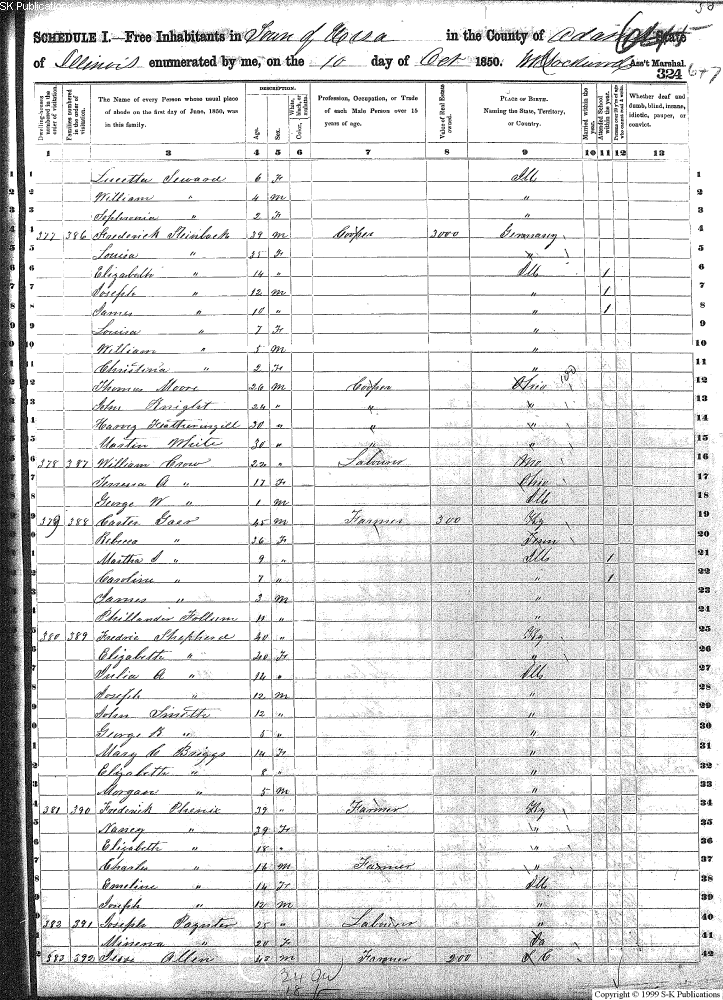 SK Publications
SCHEDULE I.—Free Inhabitants in Town of Ursa in the County of Adams State
of Illinois enumerated by me, on the 10 day of Oct 1850. Ass't Marshal.
324
Dwelling-houses numbered in the order of visitation.
Families numbered in the order of visitation.
The Name of every Person whose usual place of abode on the first day of June, 1850, was in this family.
DESCRIPTION.
Age.
Sex.
White, black, or mulatto.
Color,
Profession, Occupation, or Trade of each Male Person over 15 years of age.
Value of Real Estate owned.
PLACE OF BIRTH.
Naming the State, Territory, or Country.
Married within the year.
Attended School within the year.
Whether deaf and dumb, blind, insane, idiotic, pauper, or convict.
1 2 3 4 5 6 7 8 9 10 11 12 13
1 Lucetta Seward 6 F Ill 1
2 William " 4 m " 2
3 Sophronia " 2 F " 3
4 377 386 Frederick Steinback 39 m Cooper 3000 Germany 4
5 Louisa " 35 F " 5
6 Elizabeth " 14 " Ill 1 6
7 Joseph " 12 m " 1 7
8 James " 10 " " 1 8
9 Louisa " 7 F " 9
10 William " 5 m " 10
11 Christena " 2 F " 11
12 Thomas Moore 26 m Cooper Ohio 12
13 John Knight 24 " " " 13
14 Harvey Featheringill 30 " " " 14
15 Martin White 30 " " " 15
16 378 387 William Crow 22 " Labourer Mo 16
17 A " 17 F Ohio 17
18 George W " 1 m Ill 18
19 379 388 Carter Gaer 45 m Farmer 300 Ky 19
20 Rebecca " 36 F Tenn 20
21 Martha S " 9 " Ills 1 21
22 Caroline " 7 " " 1 22
23 James " 3 m " 23
24 Phillander Follum 11 " " 24
25 380 389 Fredric Shepherd 40 " Ky 25
26 Elizabeth " 40 F " 26
27 Julia A " 14 " Ill 27
28 Joseph " 12 m " 28
29 John Smith 12 " " 29
30 George R " 5 " " 30
31 Mary C Briggs 14 F " 31
32 Elizabeth " 8 " " 32
33 Morgan " 5 m " 33
34 381 390 Frederick Phenix 39 " Farmer Ky 34
35 Nancy " 39 F " 35
36 Elizabeth " 18 " " 36
37 Charles " 16 m Farmer " 37
38 Emeline " 14 F Ill 38
39 Joseph " 12 m " 39
40 382 391 Joseph Paynter 25 " Labourer " 40
41 Minerva " 20 F Pa 41
42 383 392 Jesse Allen 40 m Farmer 200 S C 42
Copyright © 1999 S-K Publications